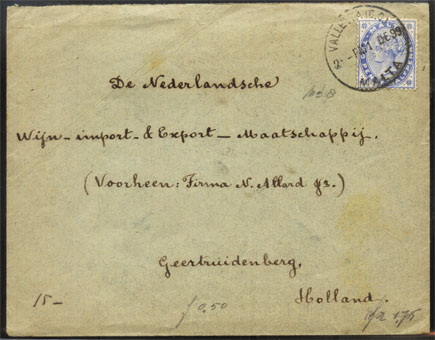 VALLETTA
MALTA
De Nederlandsche
Wijn-import-&Export-Maatschappij.
(Voorheen: Firma N. Allard
Geertruidenberg.
Holland.
15-
f 0.50
1.75